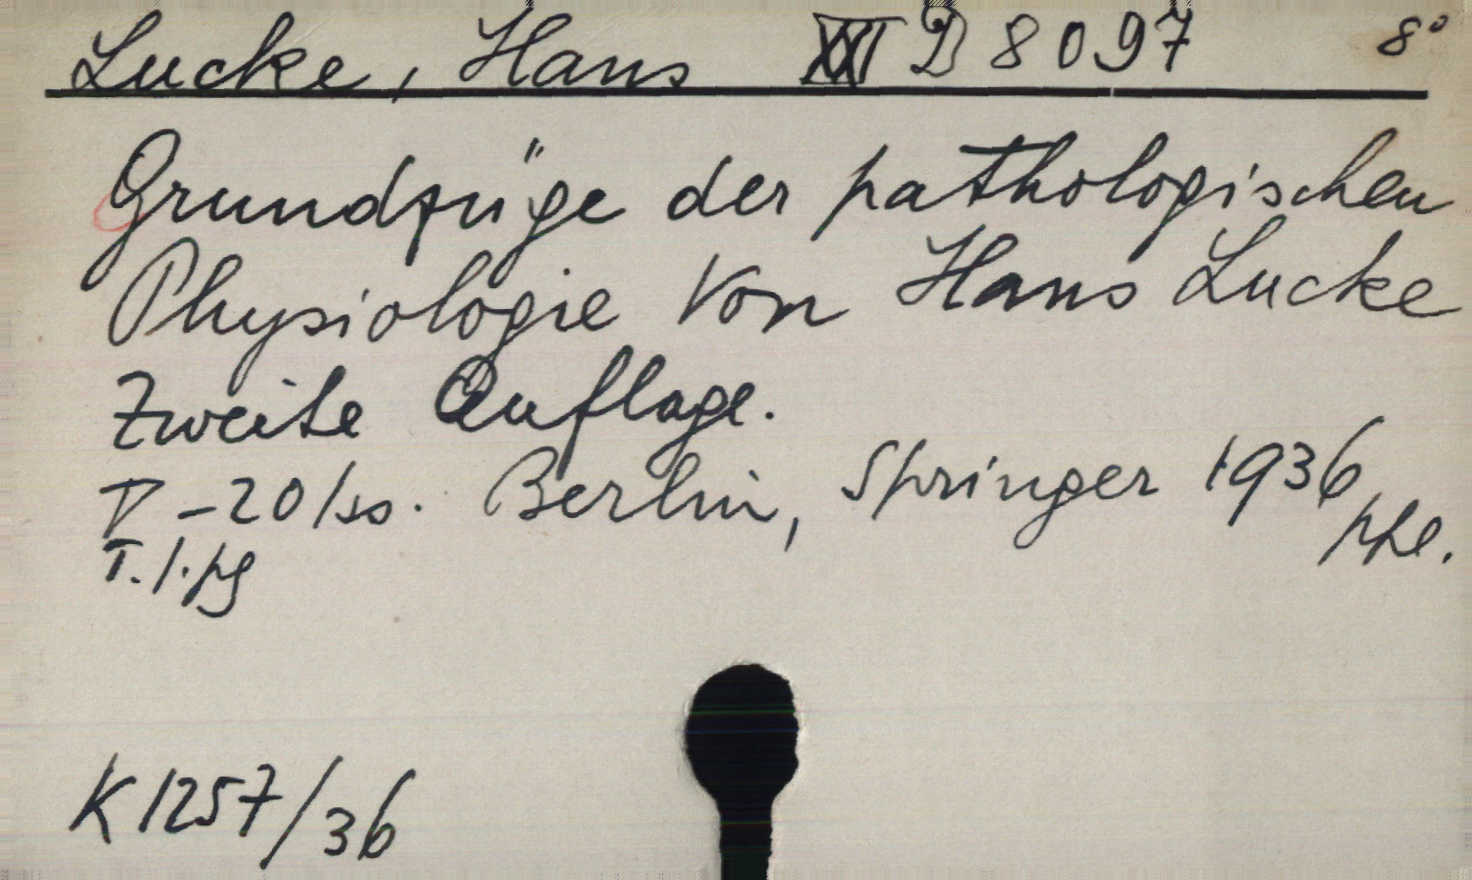 Lucke, Hans XXI D 8097 8°
Grundzüge der pathologischen
Physiologie Von Hans Lucke
Zweite Auflage.
Berlin, Springer 1936
T. 1. pg
K 1257/36